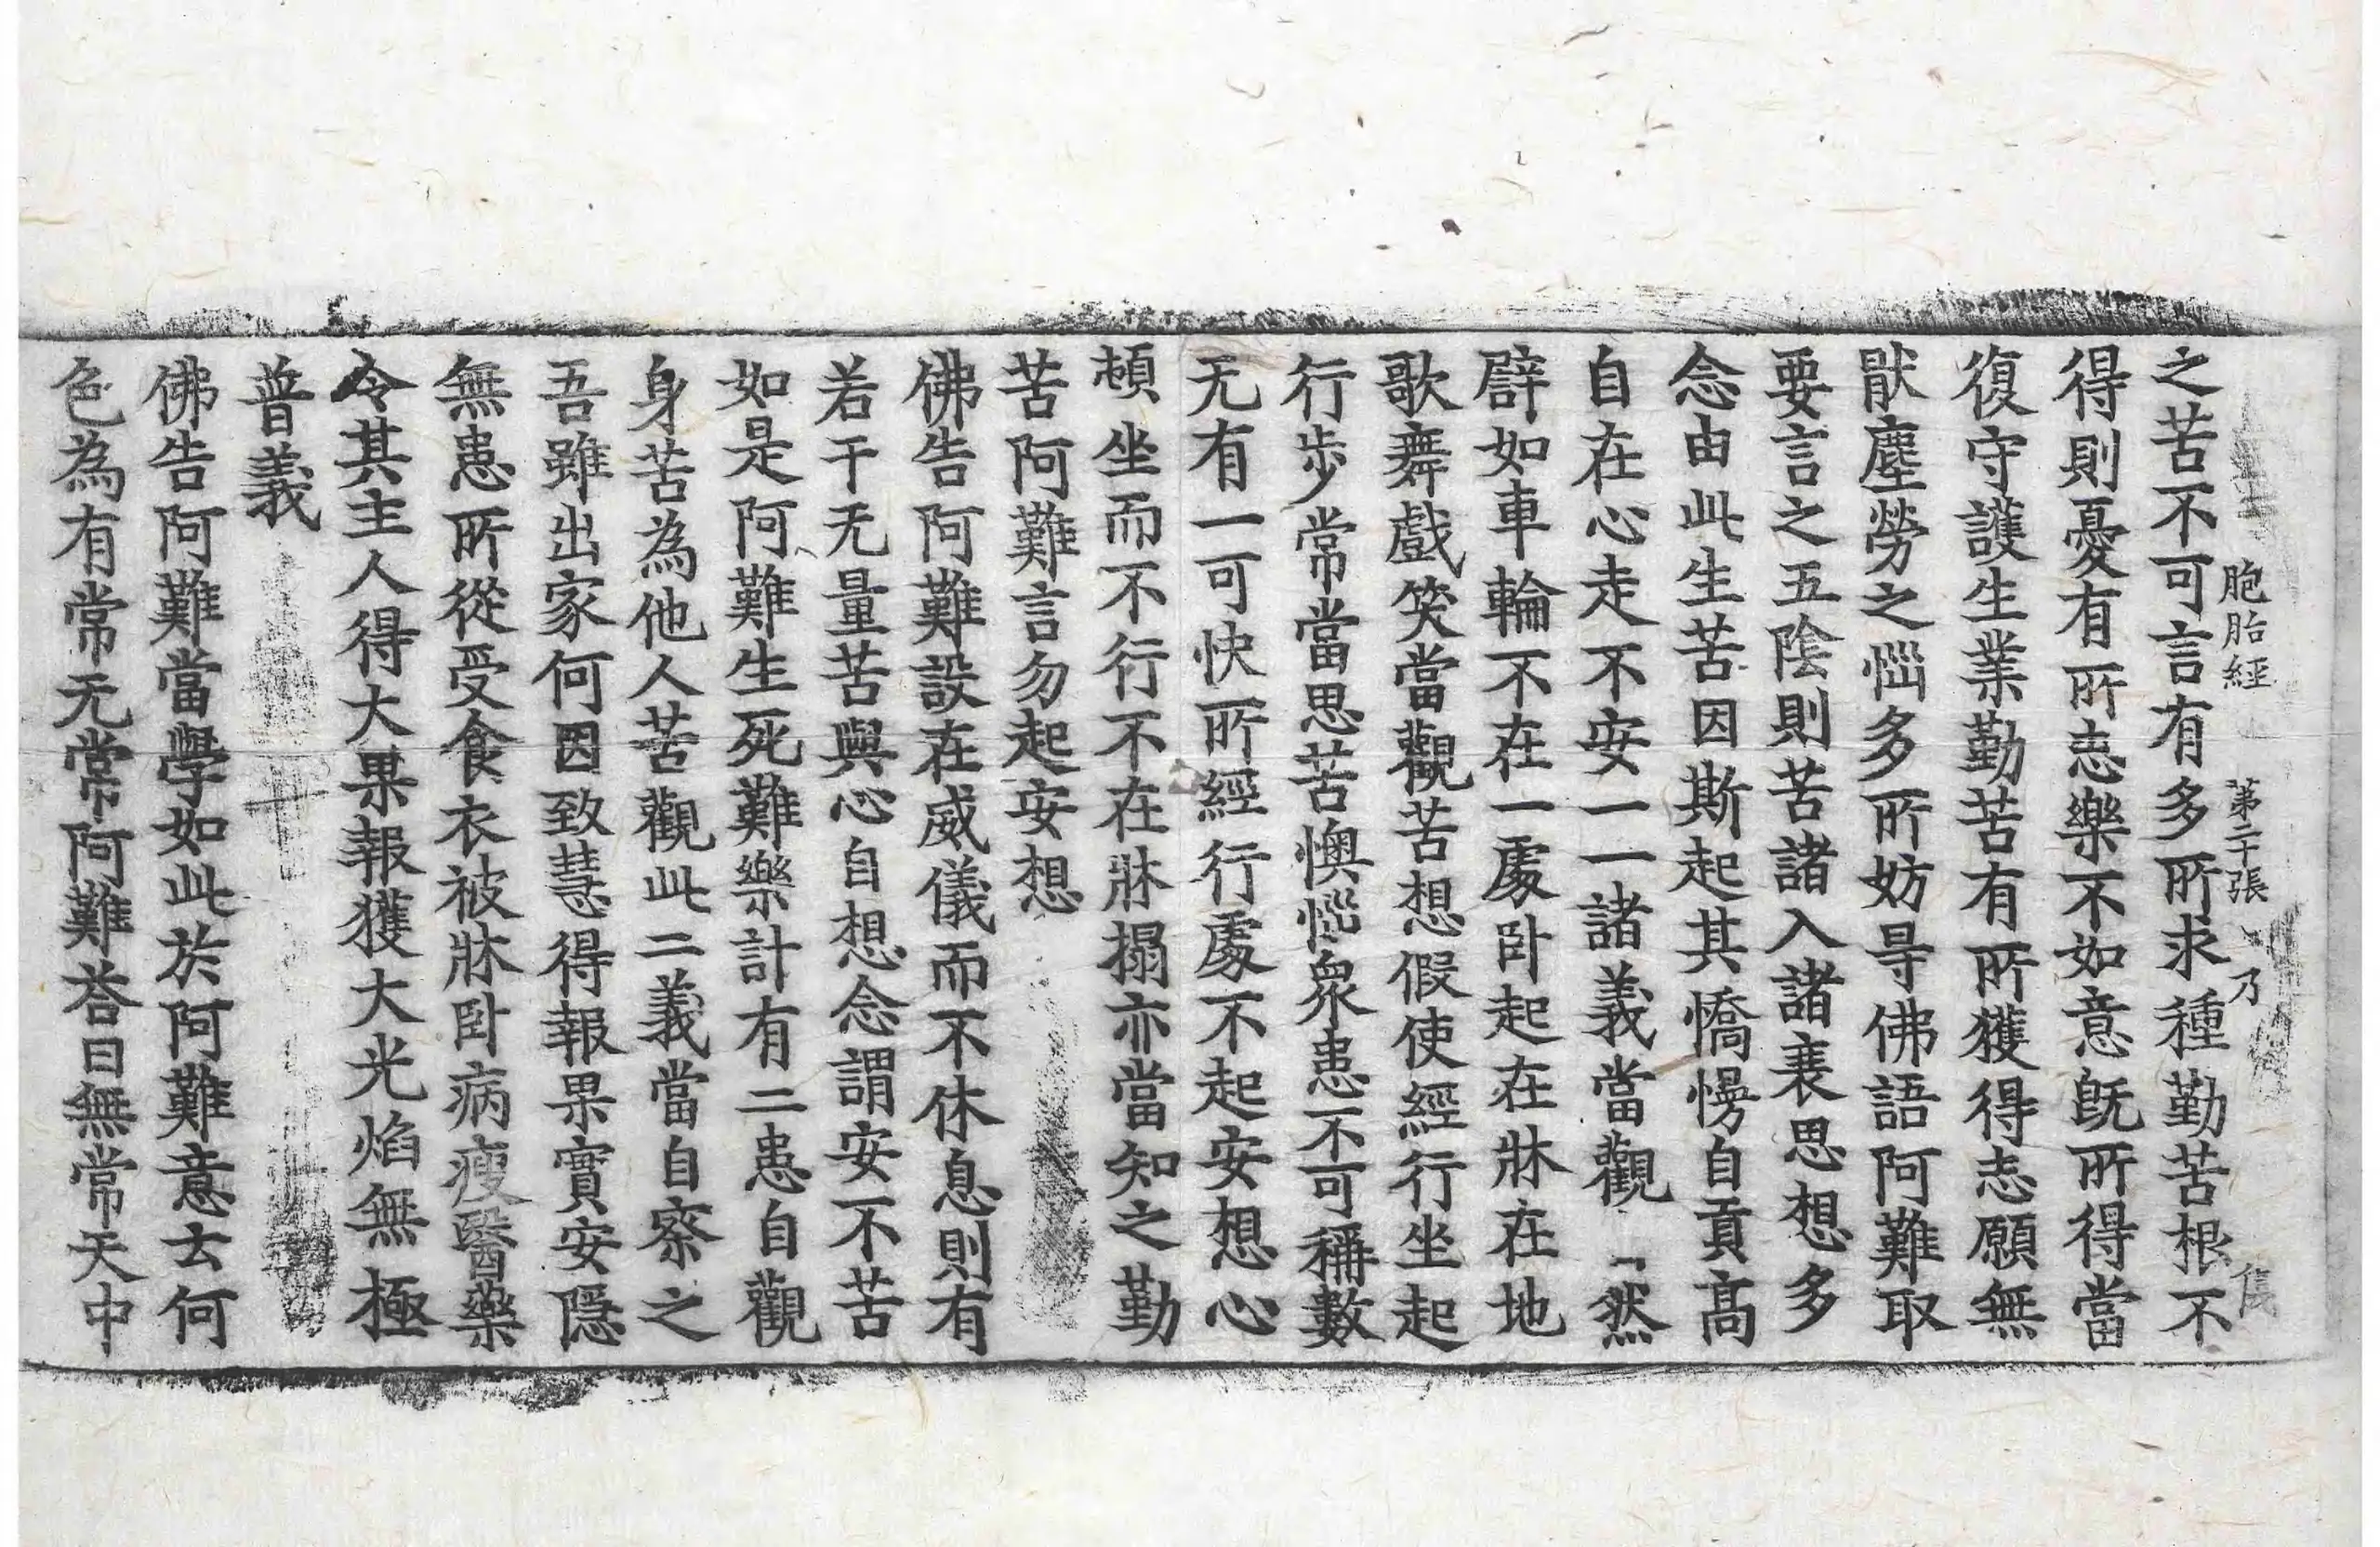 胞胎經 第二十張 乃
之苦不可言有多所求種勤苦根不
得則憂有所志樂不如意旣所得當
復守護生業勤苦有所獲得志願無
猒塵勞之惱多所妨㝵佛語阿難取
要言之五陰則苦諸入諸衰思想多
念由此生苦因斯起其憍慢自貢高
自在心走不安一一諸義當觀然
譬如車輪不在一處卧起在牀在地
歌舞戲笑當觀苦想假使經行坐起
行步常當思苦懊惱衆患不可稱數
无有一可快所經行處不起安想心
頓坐而不行不在牀搨亦當知之勤
苦阿難言勿起安想
佛告阿難設在威儀而不休息則有
若干无量苦與心自想念謂安不苦
如是阿難生死難樂計有二患自觀
身苦為他人苦觀此二義當自察之
吾雖出家何因致慧得報果實安隱
無患所從受食衣被牀卧病瘦醫藥
令其主人得大果報獲大光焰無極
普義
佛告阿難當學如此於阿難意云何
色為有常无常阿難荅曰無常天中